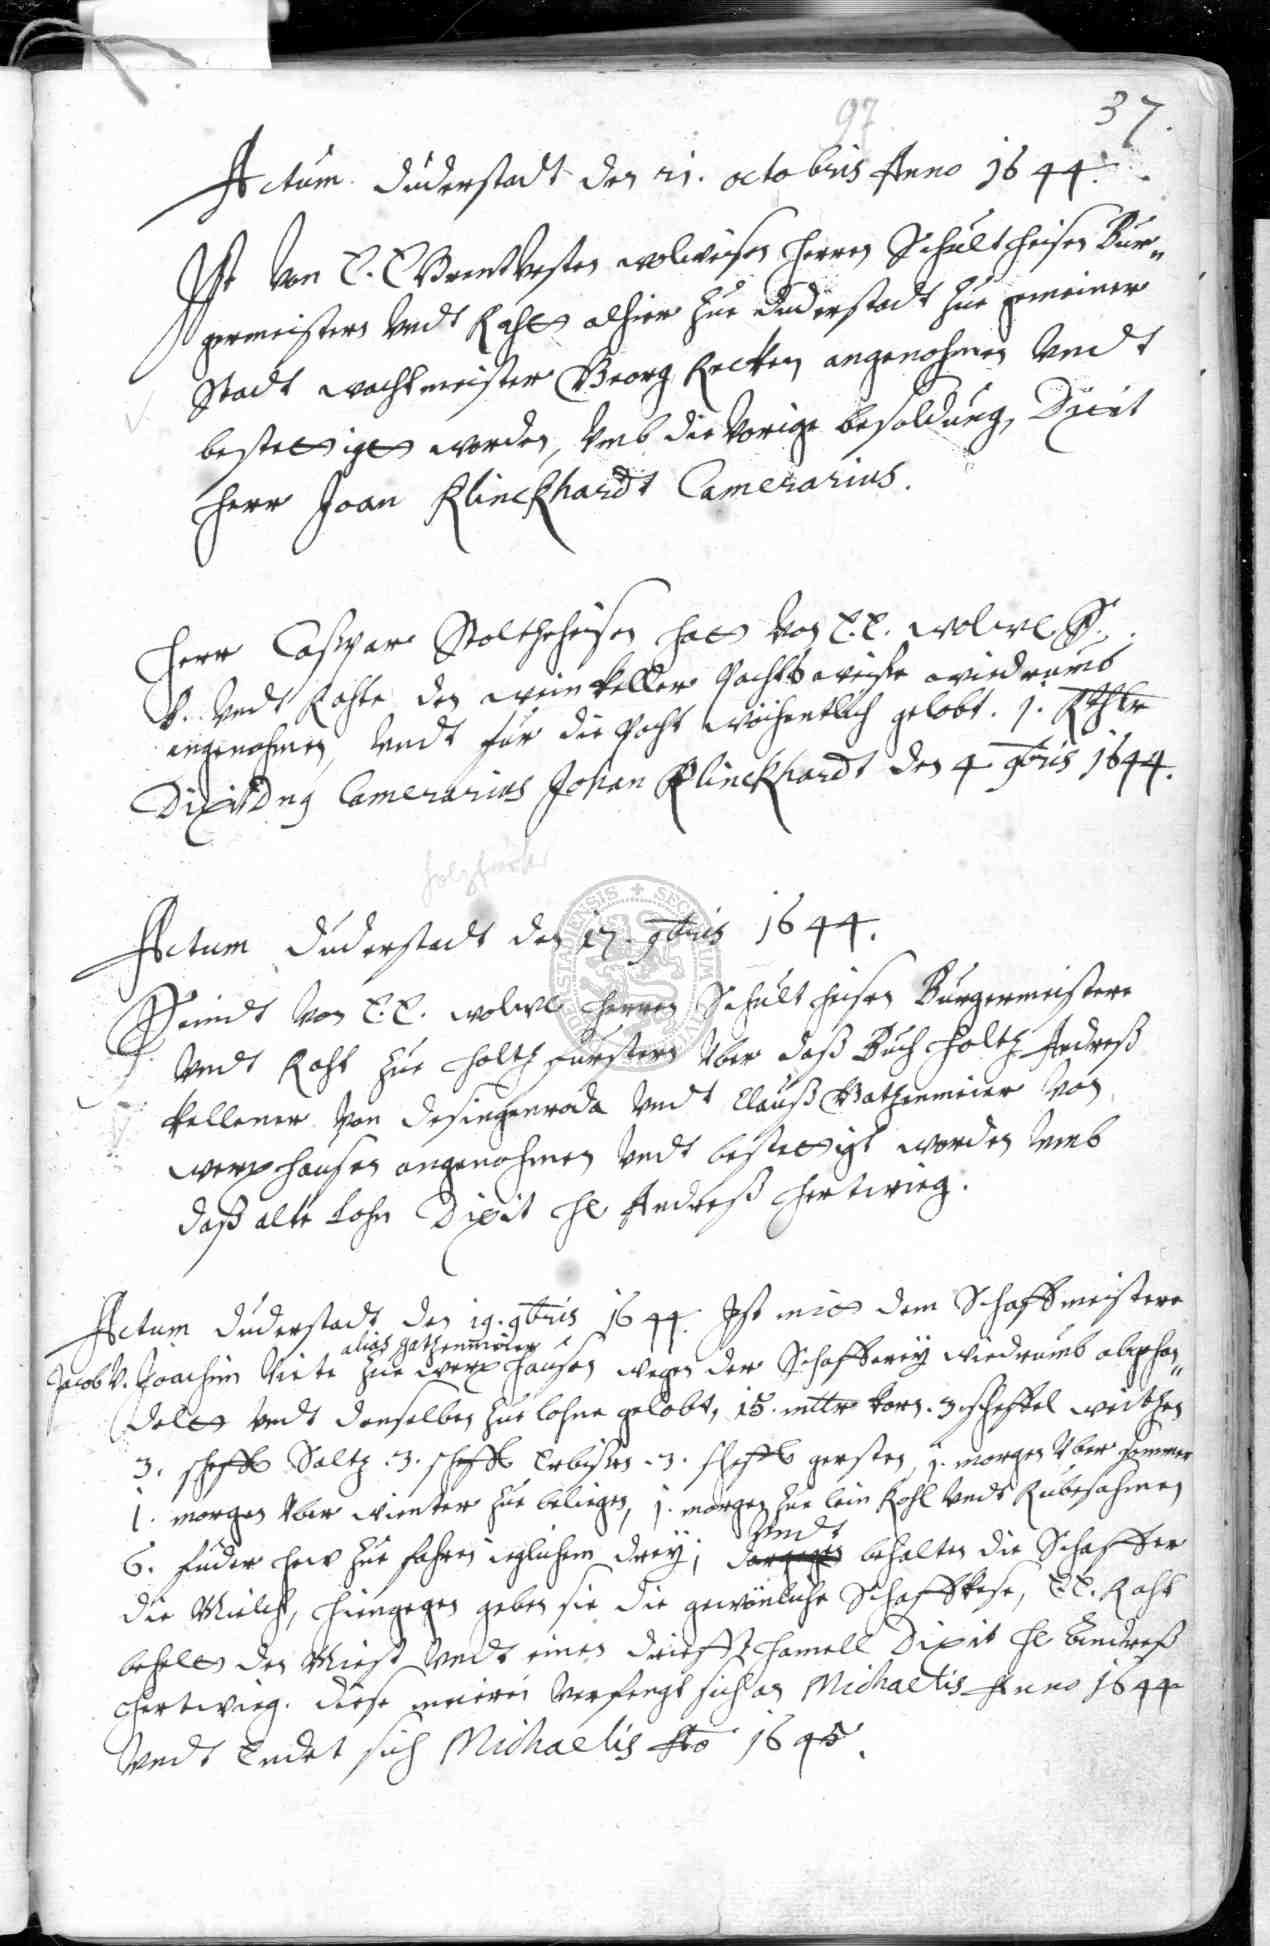 97
37.
Actum Duderstadt den 21. octobris Anno 1644.
Ist von E. E. Ernvesten wolweisen Herren Schultheisen Bur„
germeistern undt Rahtt alhier zue Duderstadt zue gemeiner
Stadt wachtmeister Georg Recken angenohmen undt
bestettigtt worden, umb die vorige besoldung, Dixit
Herr Joan Klinckhardt Camerarius.
Herr Caspar Stoltzheisen hatt von E. E. wolwl S.
B. undt Rahte den weinkeller Pachtsweise wiedrumb
angenohmen, undt für die Pacht wöchentlich gelobt. 1. Rthlr
Dixit Dns Camerarius Johan Klinckhardt den 4 9bris 1644.
holzförster
Actum Duderstadt den 17. 9bris 1644.
Seindt von E. E. wolwl Herren Schultheisen Burgermeistere
undt Raht zue Holtz furstern uber daß Buch Holtz Andreß
Kellener von Desingenroda undt Clauß Gatzenmeier von
werxhausen angenohmen undt bestettigt worden umb
daß alte Lohn Dixit Hl Andreß Hertwieg.
Actum Duderstadt den 19. 9bris 1644. Ist mitt dem Schaffmeistere
alias gatzenmeier
Jacob V. Joachim Viete zue werxhausen wegen der Schafferey wiedrumb abgehan„
delt undt denselben zue lohne gelobt, 15. mltr korn. 3. scheffel weitzen
3. scheffl Saltz. 3. scheffl Erbissen. 3. scheffl gersten, 1. morgen uber sommer
1. morgen uber winter zue beliegen, 1. morgen zue lein kohl undt Rubesahmen
6. fuder hew zue fahren ieglichem drey; undt behalten die Schaffer
die Milch, hiengegen geben sie die gewönliche Schaffkese, E E. Raht
behelt den Miest undt einen Hamell Dixit Hl Andreß
Hertwieg. diese meierei verfengt sich an Michaelis Anno 1644
undt Endet sich Michaelis Ao 1645.